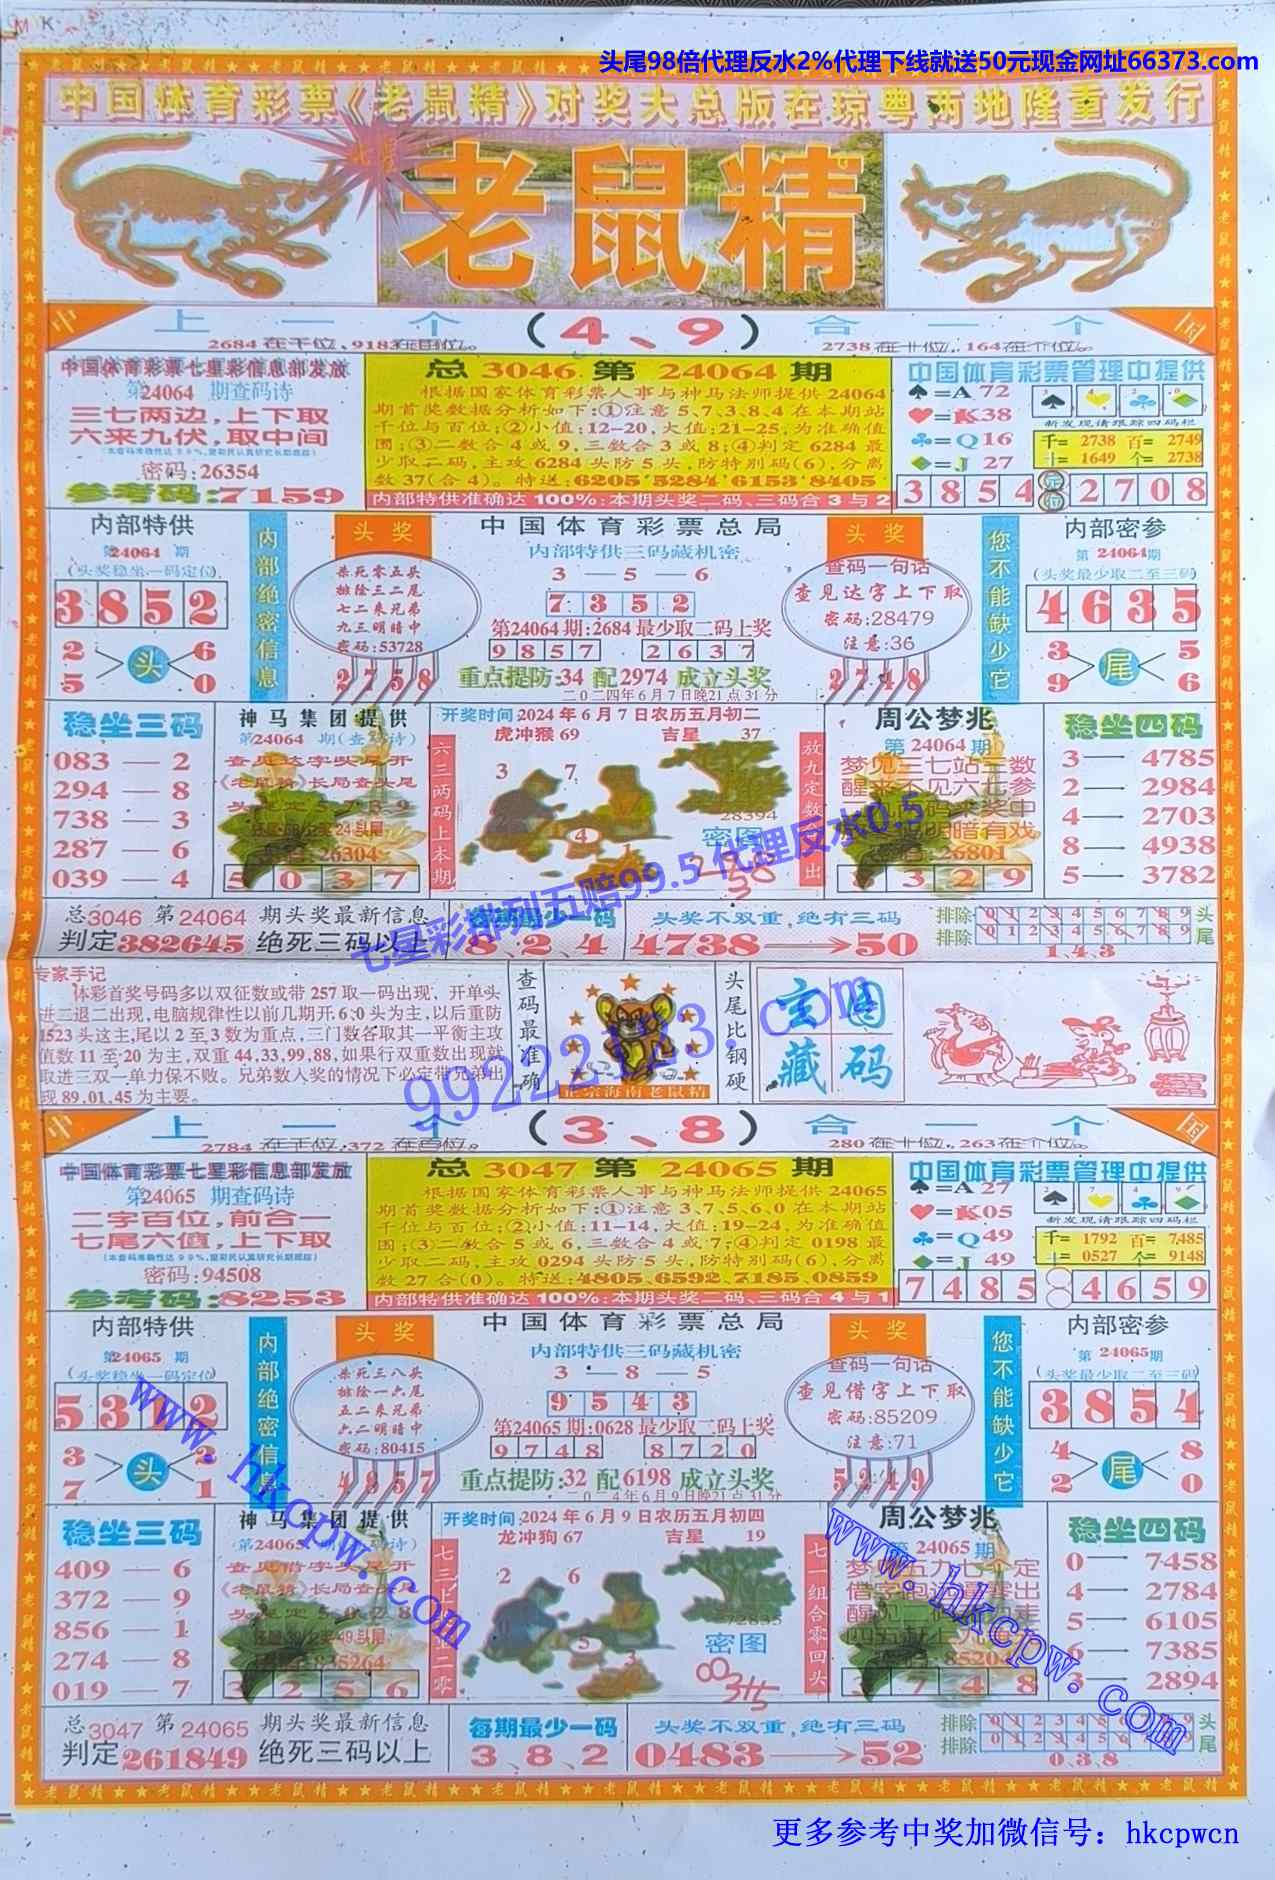 M K
头尾98倍代理反水2%代理下线就送50元现金网址66373.com
中国体育彩票《老鼠精》对奖大总版在琼粤两地隆重发行
老鼠精
中 上一个 (4、9) 合一个 国
2684在千位、918在百位。
2738在十位、164在个位。
中国体育彩票七星彩信息部发放
第24064 期查码诗
三七两边,上下取
六来九伏,取中间
密码:26354
参考码:7159
总 3046 第 24064 期
根据国家体育彩票人事与神马法师提供24064
期首奖数据分析如下:①注意5、7、3、8、4在本期站
千位与百位;②小值:12-20,大值:21-25,为准确值
围;③二数合4或9,三数合3或8;④判定6284最
少取二码,主攻6284头防5头,防特别码(6),分离
数37(合4)。特送:6205、5284、6153、8405
内部特供准确达100%:本期头奖二码、三码合3与2
中国体育彩票管理中提供
♠=A 72
♥=K 38
♣=Q 16
♦=J 27
新发现请跟踪四码栏
千= 2738 百= 2749
十= 1649 个= 2738
3 8 5 4 定位 2 7 0 8
内部特供
第24064 期
(头奖稳坐一码定位)
3 8 5 2
2 6
头
5 0
内部绝密信息
头奖
杀死零五头
排除三二尾
七二来兄弟
九三明暗中
密码:53728
2 7 5 8
中国体育彩票总局
内部特供三码藏机密
3 — 5 — 6
7 3 5 2
第24064期:2684最少取二码上奖
9 8 5 7 2 6 3 7
重点提防:34 配 2974 成立头奖
二〇二四年6月7日晚21点31分
头奖
查码一句话
查见达字上下取
密码:28479
注意:36
2 7 4 8
您不能缺少它
内部密参
第 24064期
(头奖最少取二至三码)
4 6 3 5
3 5
尾
9 6
稳坐三码
083 — 2
294 — 8
738 — 3
287 — 6
039 — 4
神马集团提供
第24064
5 0 3 7
六三两码上本期
开奖时间:2024年6月7日农历五月初二
虎冲猴 69 吉星 37
3 7
4
28394
密图
放九定数 出
周公梦兆
第 24064期
梦见三七站三数
26801
3 2 9
稳坐四码
3 — 4785
2 — 2984
4 — 2703
8 — 4938
5 — 3782
总3046 第24064 期头奖最新信息
判定382645 绝死三码以上
每期最少一码
8、2、4
头奖不双重,绝有三码
4738→50
排除 0 1 2 3 4 5 6 7 8 9 头
排除 0 1 2 3 4 5 6 7 8 9 尾
1、4、3
专家手记
体彩首奖号码多以双征数或带257取一码出现,开单头
进二退二出现,电脑规律性以前几期开6、0头为主,以后重防
1523头这主,尾以2至3数为重点,三门数各取其一平衡主攻
值数11至20为主,双重44,33,99,88,如果行双重数出现就
取进三双一单力保不败。兄弟数入奖的情况下必定带兄弟出
现89、01、45为主要。
查码最准确
正宗海南老鼠精
头尾比钢硬
玄图藏码
中 上一个 (3、8) 合一个 国
2784在千位、372在百位。
280在十位、263在个位。
中国体育彩票七星彩信息部发放
第24065 期查码诗
二字百位,前合一
七尾六值,上下取
密码:94508
参考码:8253
总 3047 第 24065 期
根据国家体育彩票人事与神马法师提供24065
期首奖数据分析如下:①注意3、7、5、6、0在本期站
千位与百位;②小值:11-14,大值:19-24,为准确值
围;③二数合5或6,三数合4或7;④判定0198最
少取二码,主攻0294头防5头,防特别码(6),分离
数27合(0)。特送:4805、6592、7185、0859
内部特供准确达100%:本期头奖二码、三码合4与1
中国体育彩票管理中提供
♠=A 27
♥=K 05
♣=Q 49
♦=J 49
新发现请跟踪四码栏
千= 1792 百= 7485
十= 0527 个= 9148
7 4 8 5 4 6 5 9
内部特供
第24065 期
(头奖稳坐一码定位)
5 3 1 2
3 2
头
7 1
内部绝密信息
头奖
杀死三八头
排除一六尾
五二来兄弟
六二明暗中
密码:80415
4 8 5 7
中国体育彩票总局
内部特供三码藏机密
3 — 8 — 5
9 5 4 3
第24065期:0628最少取二码上奖
9 7 4 8 8 7 2 0
重点提防:32 配 6198 成立头奖
二〇二四年6月9日晚21点31分
头奖
查码一句话
查见借字上下取
密码:85209
注意:71
5 2 4 9
您不能缺少它
内部密参
第 24065期
(头奖最少取二至三码)
3 8 5 4
4 8
尾
2 0
稳坐三码
409 — 6
372 — 9
856 — 1
274 — 8
019 — 7
神马集团提供
3 2 5 6
开奖时间:2024年6月9日农历五月初四
龙冲狗 67 吉星 19
2 6
5
密图
七一组合零回头
周公梦兆
第 24065期
7 4 8
稳坐四码
0 — 7458
4 — 2784
5 — 6105
6 — 7385
3 — 2894
总3047 第24065 期头奖最新信息
判定261849 绝死三码以上
每期最少一码
3、8、2
头奖不双重,绝有三码
0483→52
排除 头
排除 尾
0、3、8
七星彩排列五赔99.5 代理反水0.5
www.hkcpw.com
www.hkcpw.com
更多参考中奖加微信号：hkcpwcn